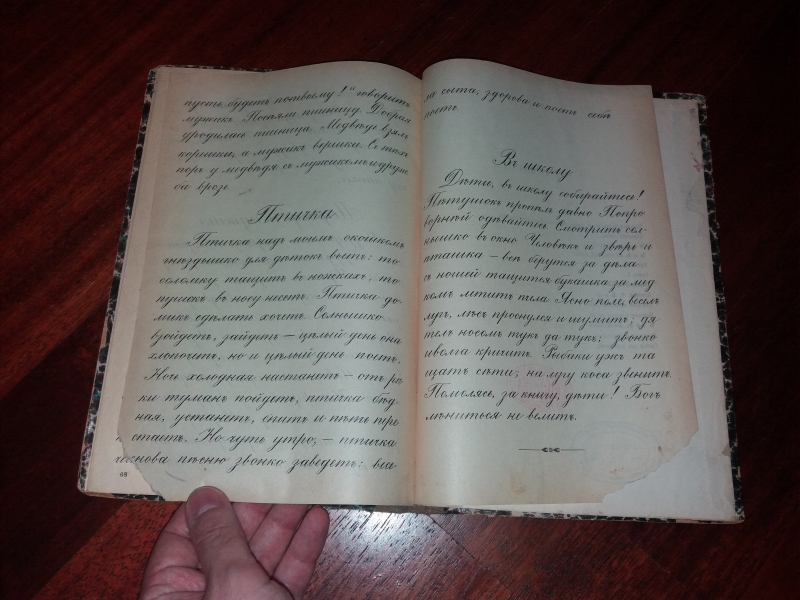 пусть будетъ потвоему!“ говоритъ
мужикъ Посѣяли пшеницу. Добрая
уродилась пшеница. Медвѣдь взялъ
корешки, а мужикъ вершки. Съ тѣхъ
поръ у медвѣдя съ мужикомъ и друж
ба врозь.
Птичка
Птичка надъ моимъ окошкомъ
гнѣздышко для дѣтокъ вьетъ: то
соломку тащитъ въ ножкахъ, то
пушокъ въ носу несть. Птичка до-
микъ сдѣлать хочетъ. Солнышко
взойдетъ, зайдетъ — цѣлый день она
хлопочетъ, но и цѣлый день поетъ.
Ночь холодная настанетъ — отъ рѣ
ки туманъ пойдетъ, птичка бѣд
ная, устанетъ, спитъ и пѣть пре
стаетъ. Но чуть утро, — птичка
снова пѣсню звонко заведетъ: весе
68
ла сыта, здорова и поетъ себѣ
поетъ.
Въ школу
Дѣти, въ школу собирайтесь!
Пѣтушокъ пропѣлъ давно Попро
ворнѣй одѣвайтесь Смотритъ сол-
нышко въ окно Человѣкъ и звѣрь и
пташка — всѣ берутся за дѣла
съ ношей тащится букашка за мед
комъ летитъ пчела Ясно поле, веселъ
лугъ, лѣсъ проснулся и шумитъ; дя
телъ носомъ тукъ да тукъ; звонко
иволга кричитъ. Рыбаки ужъ та
щатъ сѣти; на лугу коса звенитъ.
Помолясь, за книгу, дѣти! Богъ
лѣниться не велитъ.